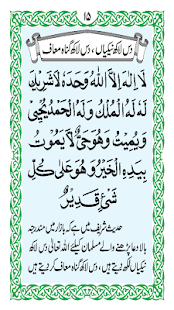 ۱۵
دس لاکھ نیکیاں، دس لاکھ گناہ معاف
لَا اِلٰهَ اِلَّا اللّٰهُ وَحْدَهٗ لَا شَرِيْكَ
لَهٗ لَهُ الْمُلْكُ وَلَهُ الْحَمْدُ يُحْيِيْ
وَيُمِيْتُ وَهُوَ حَيٌّ لَّا يَمُوْتُ
بِيَدِهِ الْخَيْرُ وَهُوَ عَلٰى كُلِّ
شَىْءٍ قَدِيْرٌ
حدیث شریف میں ہے کہ بازار میں مندرجہ
بالا دعا پڑھنے والے مسلمان کیلئے اللہ تعالیٰ دس لاکھ
نیکیاں لکھ دیتے ہیں، دس لاکھ گناہ معاف کر دیتے ہیں